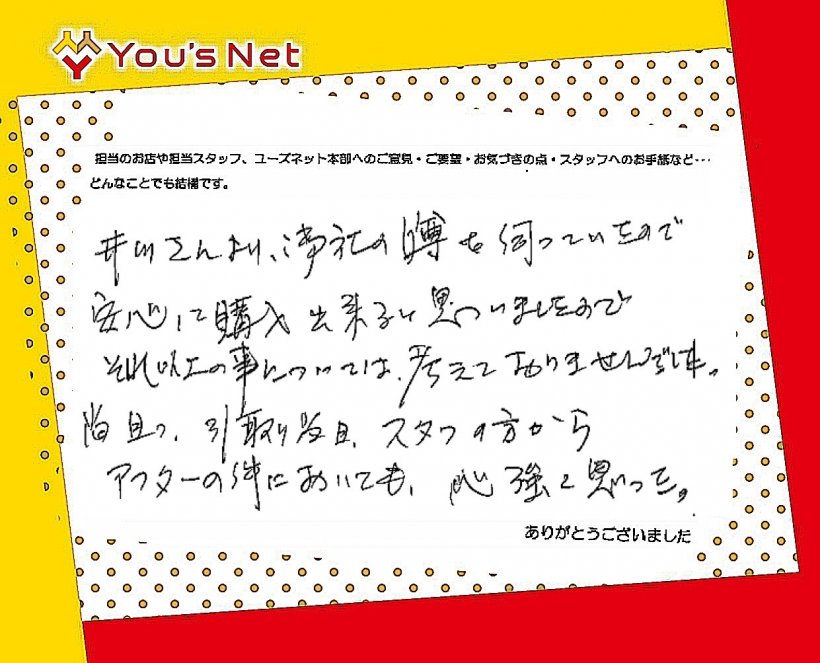 You's Net
担当のお店や担当スタッフ、ユーズネット本部へのご意見・ご要望・お気づきの点・スタッフへのお手紙など…
どんなことでも結構です。
さんより、社の噂を伺っていたので
安心して購入出来ると思っていましたので
それ以上の事については、考えておりませんでした。
尚且つ、引取り当日、スタッフの方から
アフターの件においても、心強く思った。
ありがとうございました